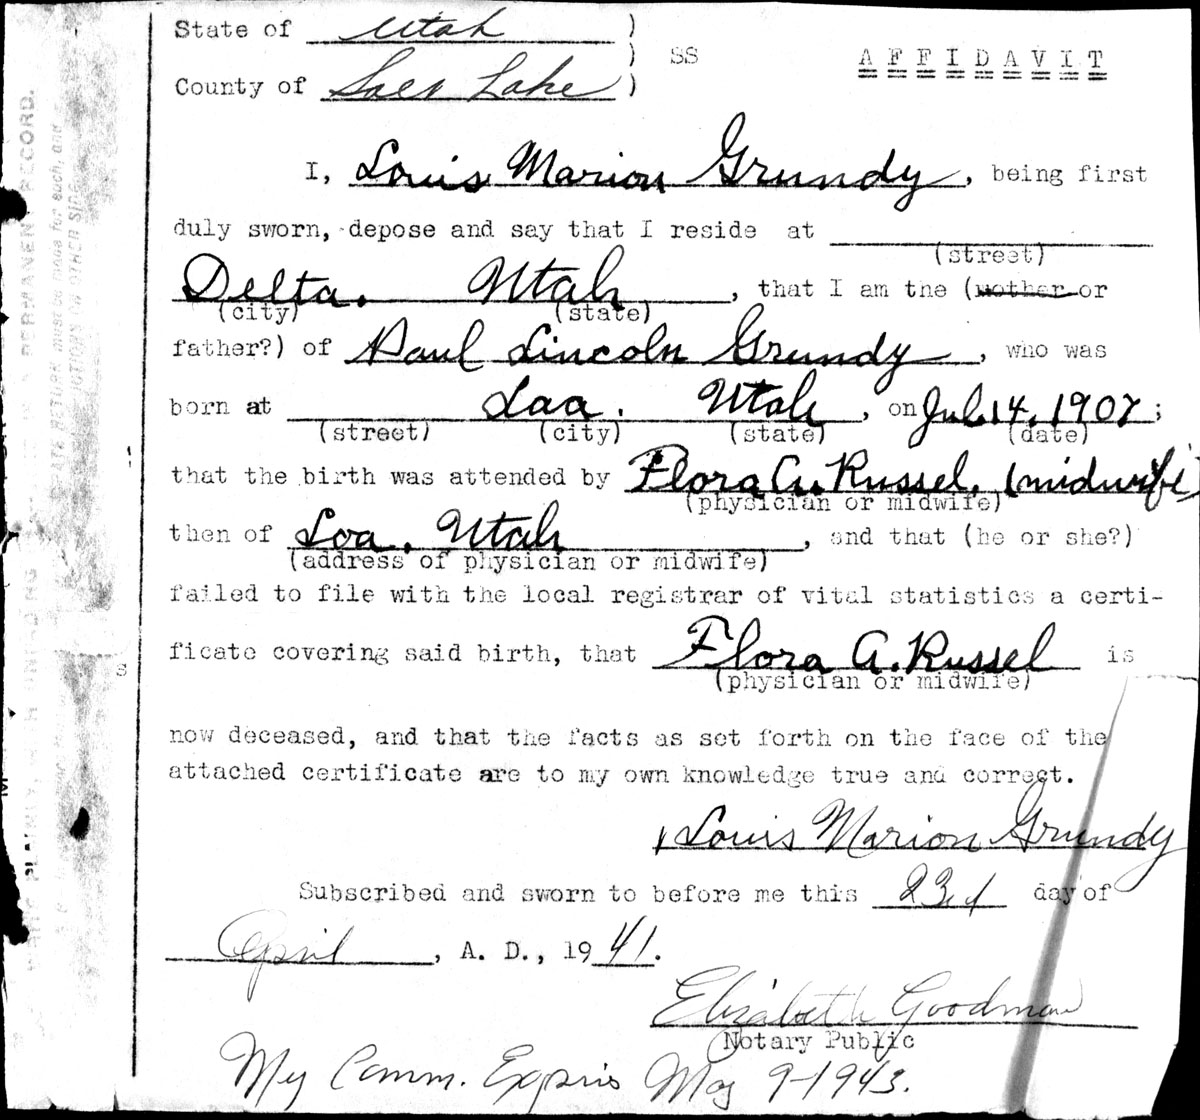 State of Utah )
) SS AFFIDAVIT
County of Salt Lake )
I, Louis Marion Grundy, being first
duly sworn, depose and say that I reside at
(street)
Delta. Utah, that I am the (mother or
(city) (state)
father?) of Paul Lincoln Grundy, who was
born at Loa. Utah, on Jul. 14, 1907;
(street) (city) (state) (date)
that the birth was attended by Flora A. Russel. (midwife)
(physician or midwife)
then of Loa. Utah, and that (he or she?)
(address of physician or midwife)
failed to file with the local registrar of vital statistics a certi-
ficate covering said birth, that Flora A. Russel is
(physician or midwife)
now deceased, and that the facts as set forth on the face of the
attached certificate are to my own knowledge true and correct.
Louis Marion Grundy
Subscribed and sworn to before me this 23rd day of
April, A. D., 1941.
Elizabeth Goodman
Notary Public
My Comm. Expris May 9-1943.
PERMANENT RECORD.
must be made for each, and